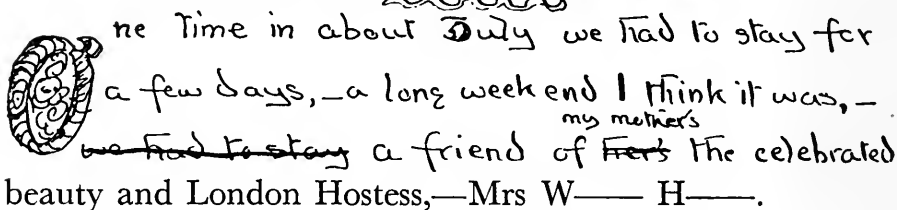 One Time in about July we had to stay for
a few days,—a long week end I think it was,—
my mother's
we had to stay a friend of her's the celebrated
beauty and London Hostess,—Mrs W—— H——.